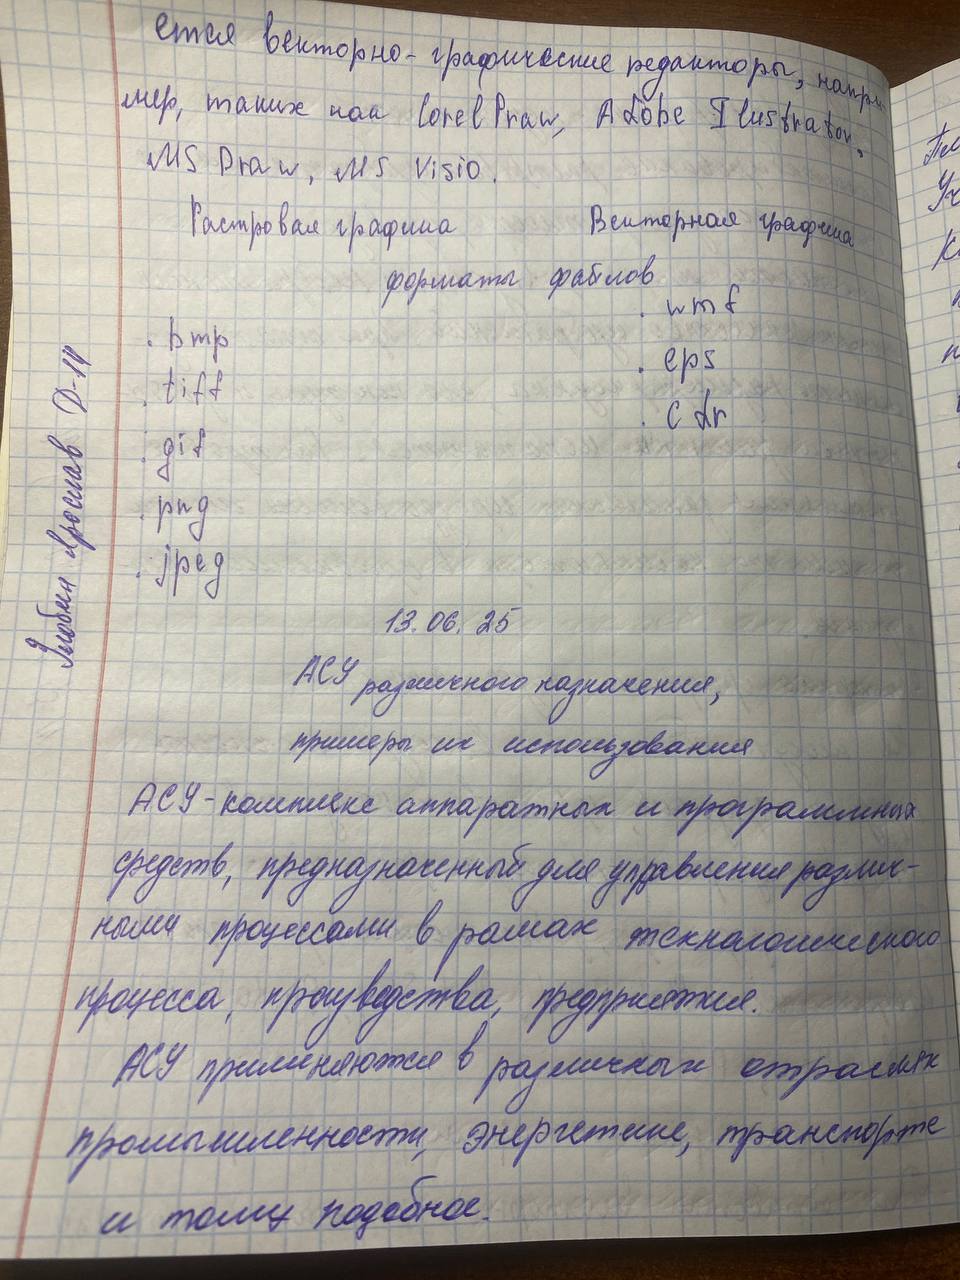 ется векторно-графические редакторы, напри
мер, таких как Corel Draw, Adobe Ilustrator,
MS Draw, MS Visio.
Растровая графика Векторная графика
форматы файлов
. bmp
. tiff
. gif
. png
. jpeg
. wmf
. eps
. cdr
Ярослав Д-14
13.06.25
АСУ различного назначения,
примеры их использования
АСУ-комплекс аппаратных и программных
средств, предназначенный для управления различ-
ными процессами в рамах технологического
процесса, производства, предприятия.
АСУ применяются в различных отраслях
промышленности, энергетике, транспорте
и тому подобное.